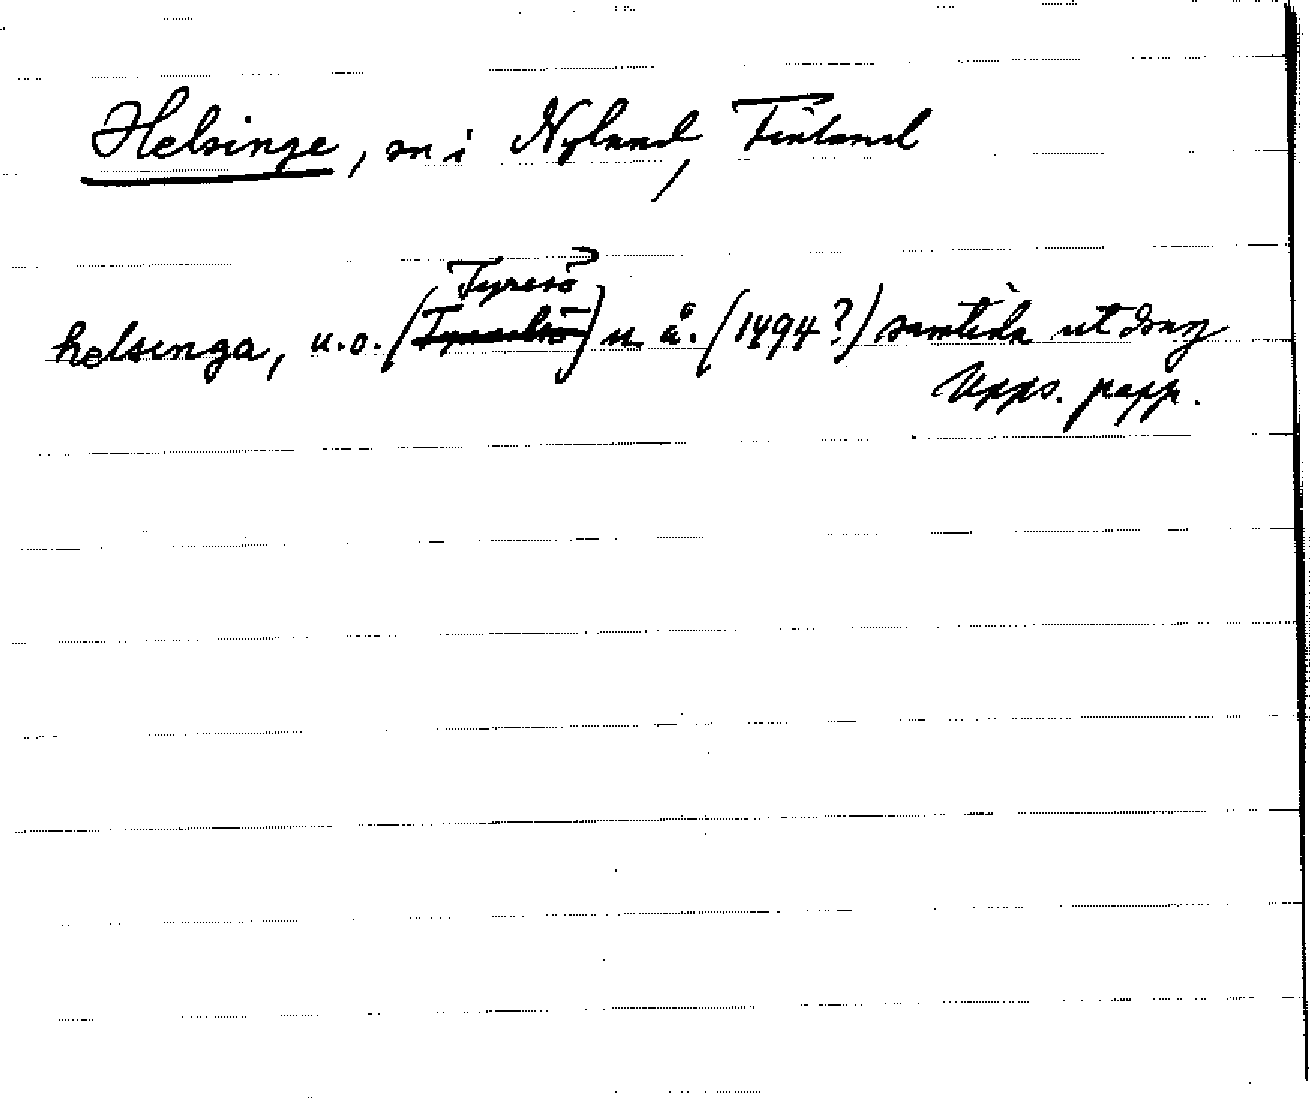 Helsinge, sn i Nyland, Finland
Tyresö
helsinga, u.o. (Tyresö) u å. (1494?) samtida utdrag
Upps. papp.